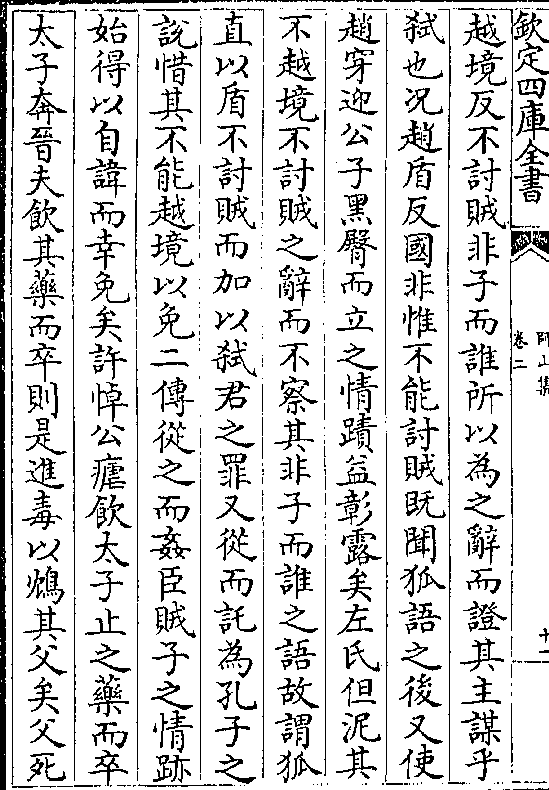 欽定四庫全書
師山集
卷二
十一
越境反不討賊非子而誰所以為之辭而證其主謀乎
弑也况趙盾反國非惟不能討賊既聞狐語之後又使
趙穿迎公子黑臀而立之情蹟益彰露矣左氏但泥其
不越境不討賊之辭而不察其非子而誰之語故謂狐
直以盾不討賊而加以弑君之罪又從而託為孔子之
說惜其不能越境以免二傳從之而姦臣賊子之情跡
始得以自諱而幸免矣許悼公瘧飲太子止之藥而卒
太子奔晉夫飲其藥而卒則是進毒以鴆其父矣父死